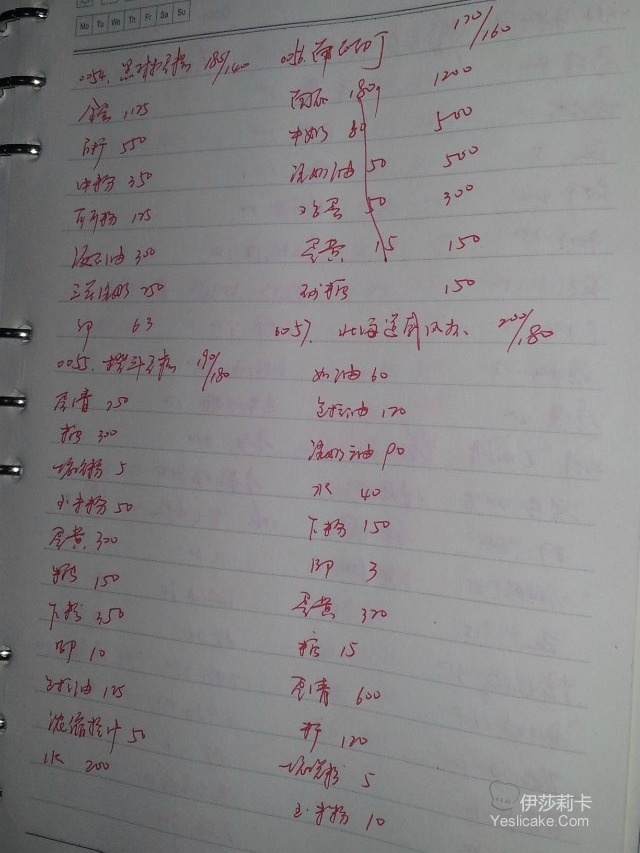 Mo Tu We Th Fr Sa Su
0054. 180/140
全蛋 175
550
中粉 350
175
油 300
三花淡奶 250
BP 63
0055. 190/180
蛋清 250
糖 300
塔塔粉 5
玉米粉 50
蛋黄 300
糖 150
下粉 350
BP 10
色拉油 175
浓缩橙汁 50
水 200
0056. 170/160
180 1200
牛奶 80 500
淡奶油 50 500
鸡蛋 50 300
蛋黄 15 150
砂糖 150
0057. 北海道 200/180
奶油 60
色拉油 120
淡奶油 90
水 40
下粉 150
BP 3
蛋黄 320
糖 15
蛋清 600
糖 120
塔塔粉 5
玉米粉 10
伊莎莉卡
Yeslicake.Com